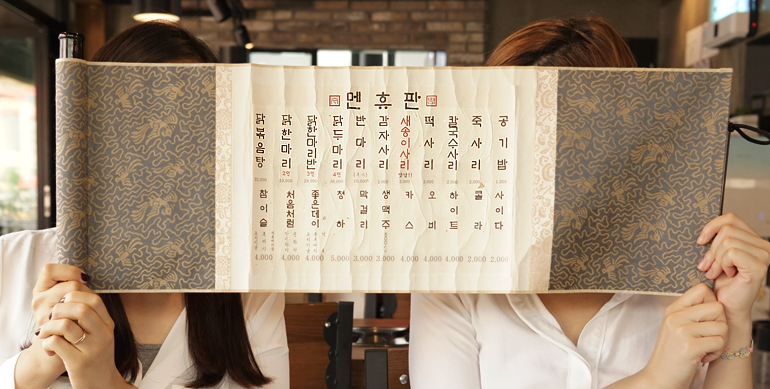 멘휴판
닭볶음탕
닭한마리
2인
닭한마리반
3인
닭두마리
4인
반마리
감자사리
새송이사리
떡사리
칼국수사리
죽사리
공기밥
참이슬
처음처럼
좋은데이
청하
막걸리
생맥주
카스
오비
하이트
콜라
사이다
4.000 4.000 4.000 5.000 3.000 3.000 4.000 4.000 4.000 2.000 2.000